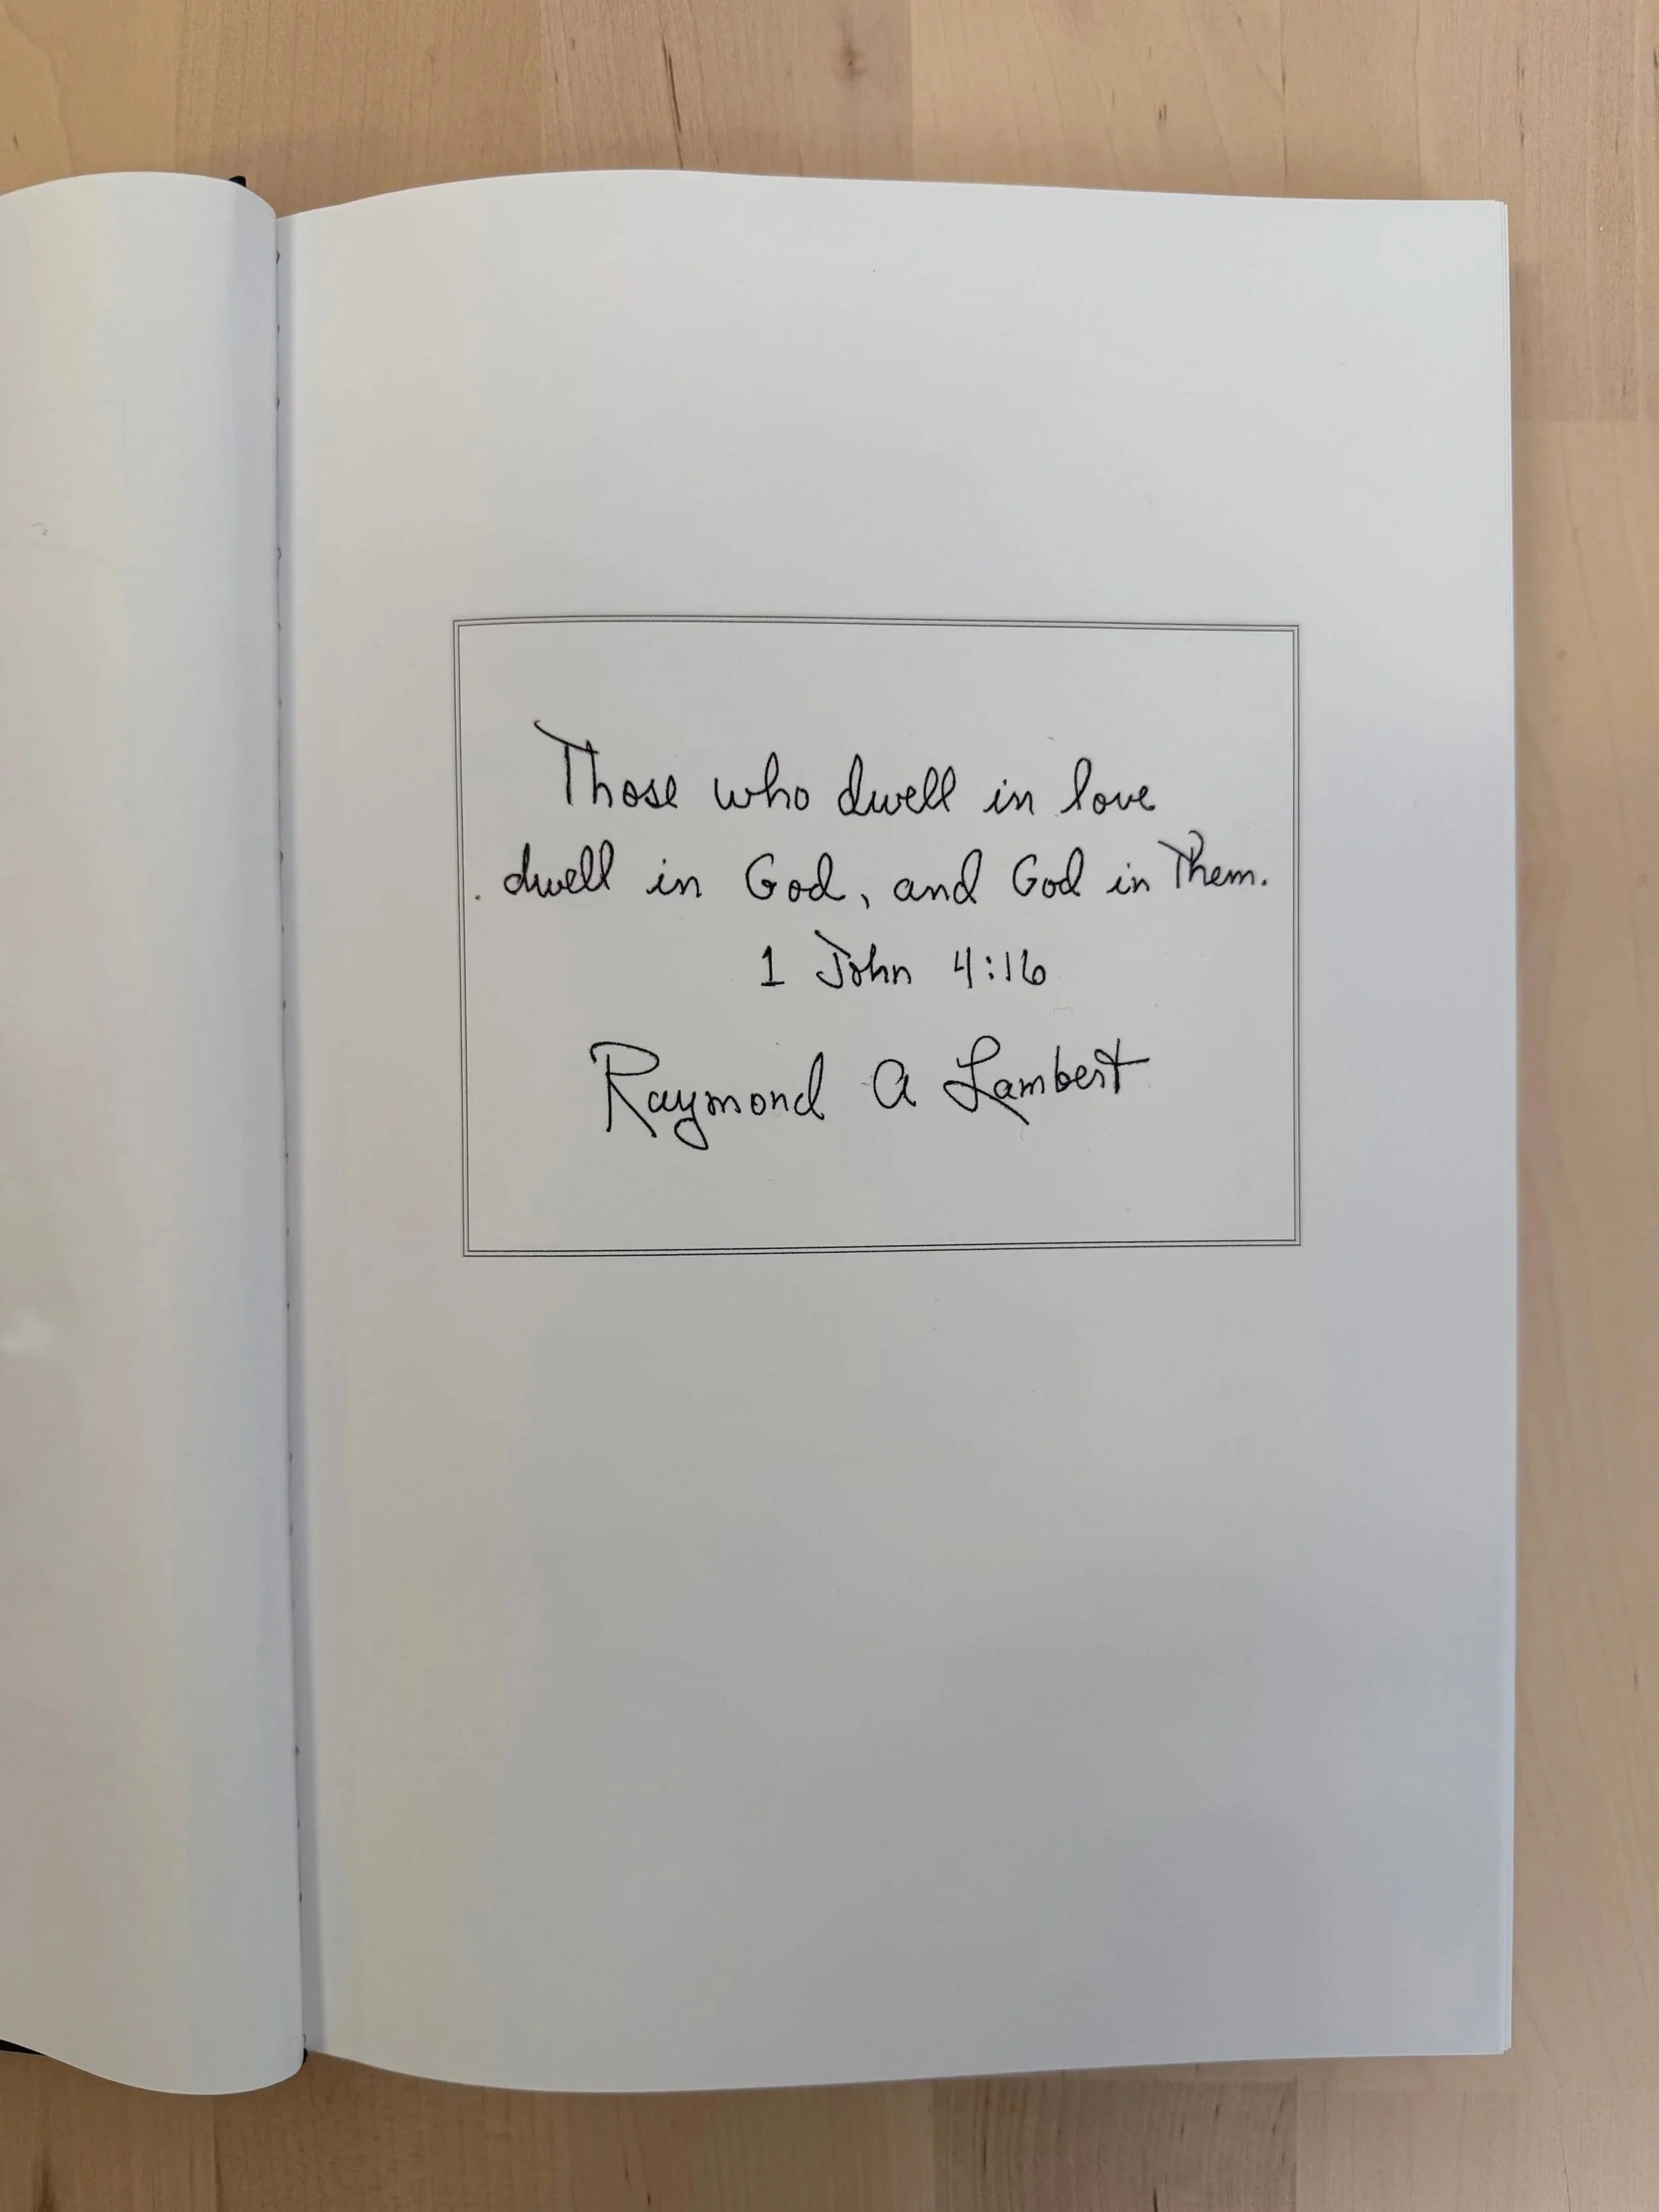 Those who dwell in love
dwell in God, and God in Them.
1 John 4:16
Raymond A Lambert